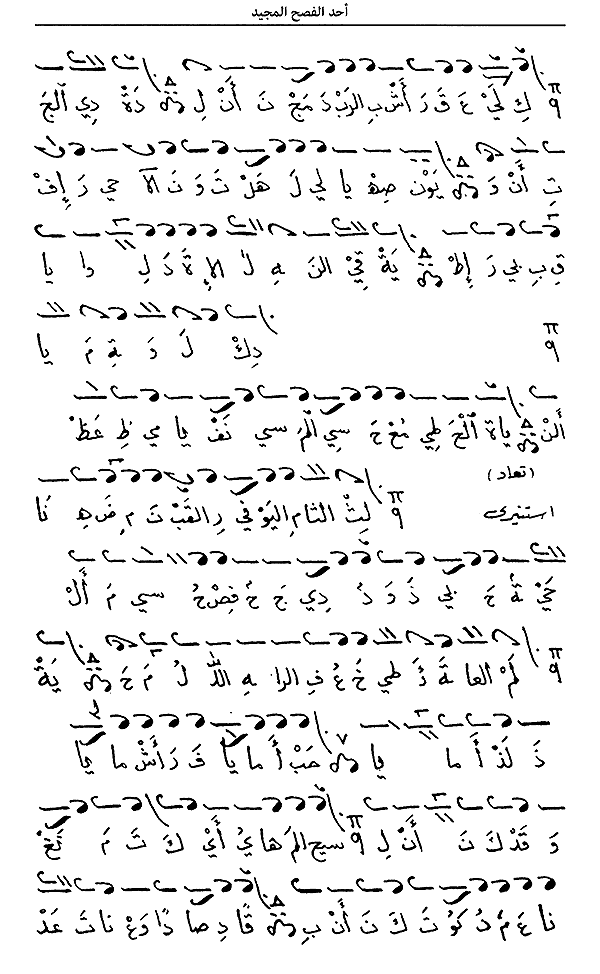 أحد الفصح المجيد
كِ لَيْ عَ قَ رَ أَشْ بِ الرَبْ دَ مَجْ نَ أَنْ لِ دَةْ دِي اَلْجَ
تِ أَنْ وَ يَوْن صِهْ يا لي لَ هَلْ تَ وَ نَ اَلآ حي رَ إِفْ
قِ بِ بي رَ إِطْ يَةْ قِيْ النَ هِ لٰ الإِ ةَ دَ لِ وا يا
دِكْ لَ وَ ةِ مَ يا
أَلنْ ياة اَلْحَ طِي مُعْ حَ سِي اَلْمَ سي نَفْ يا مي ظِ عَظْ
(تعاد)
استنيري لِثْ الثا مِ اليَوْ في رِ القَبْ تَ مِ ضَ هِ نا
حَيْ ةُ حَ بي ذَ وَ دُ دِي جَ حُ فِصْحُ سي مَ أَلْ
لَمْ العا ةَ ذُ طي خَ عُ فِ الرا هِ اللّٰ لُ مَ حَ يَةْ
ذَ لَذْ أَ ما يا حَبْ أَ ما يا فَ رَ أَشْ ما يا
وَ قَدْ كَ نَ أَنْ لِ سيح المَ ها يُ أَيْ كَ تَ مَ نَغْ
نا عَ مُ دُ كو تَ كَ نَ أَنْ بِ قًا دِ صا دًا وَعْ نا تَ عَدْ